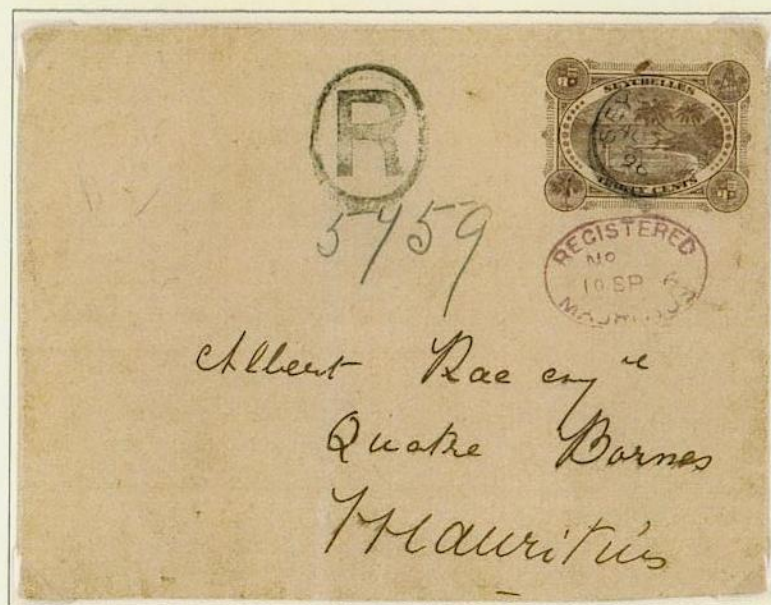 R
5759
SEYCHELLES
THIRTY CENTS
REGISTERED
No
10 SP
MAURITIUS
Albert Rae
Quatre Bornes
Mauritius